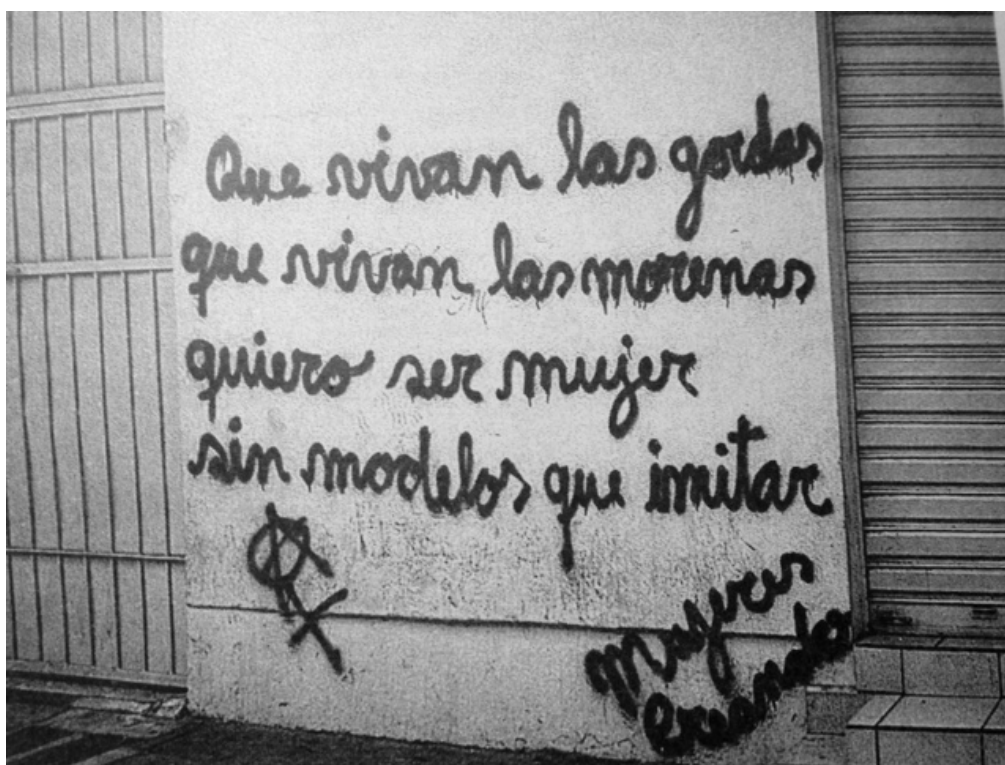 Que vivan las gordas
que vivan las morenas
quiero ser mujer
sin modelos que imitar
Mujeres
Creando